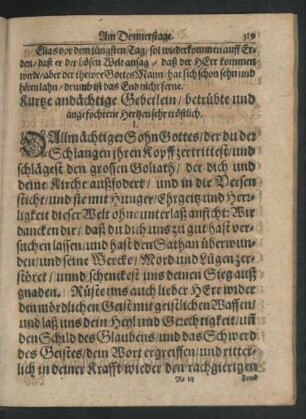 Am Donnerstage. 319
Elias vor dem Jüngsten Tag/ sol wiederkommen auff Er-
den/ daß er der bösen Welt ansag/ daß der HErr kommen
werde/ aber der thewre Gottes Mann/ hat sich schon sehn und
hören lahn/ drumb ist das End nicht ferne.
Kurtze andächtige Gebetlein/ betrübte und
angefochtene Hertzen sehr tröstlich.
I.
O Allmächtiger Sohn Gottes/ der du der
Schlangen jhren Kopff zertrittest/ und
schlägest den grossen Goliath/ der dich und
deine Kirche außfodert/ und in die Versen
sticht/ und sie mit Hunger/ Ehrgeitz und Herr-
ligkeit dieser Welt ohne unterlaß anficht: Wir
dancken dir/ daß du dich uns zu gut hast ver-
suchen lassen/ und hast den Sathan überwun-
den/ und seine Wercke/ Mord und Lügen zer-
störet/ unnd schenckest uns deinen Sieg auß
gnaden. Rüste uns auch lieber HErr wieder
den mördlichen Geist mit geistlichen Waffen/
und laß uns dein Heyl und Gerechtigkeit/ uñ
den Schild des Glaubens/ und das Schwerd
des Geistes/ dein Wort ergreiffen/ und ritter-
lich in deiner Krafft wieder den rachgierigen